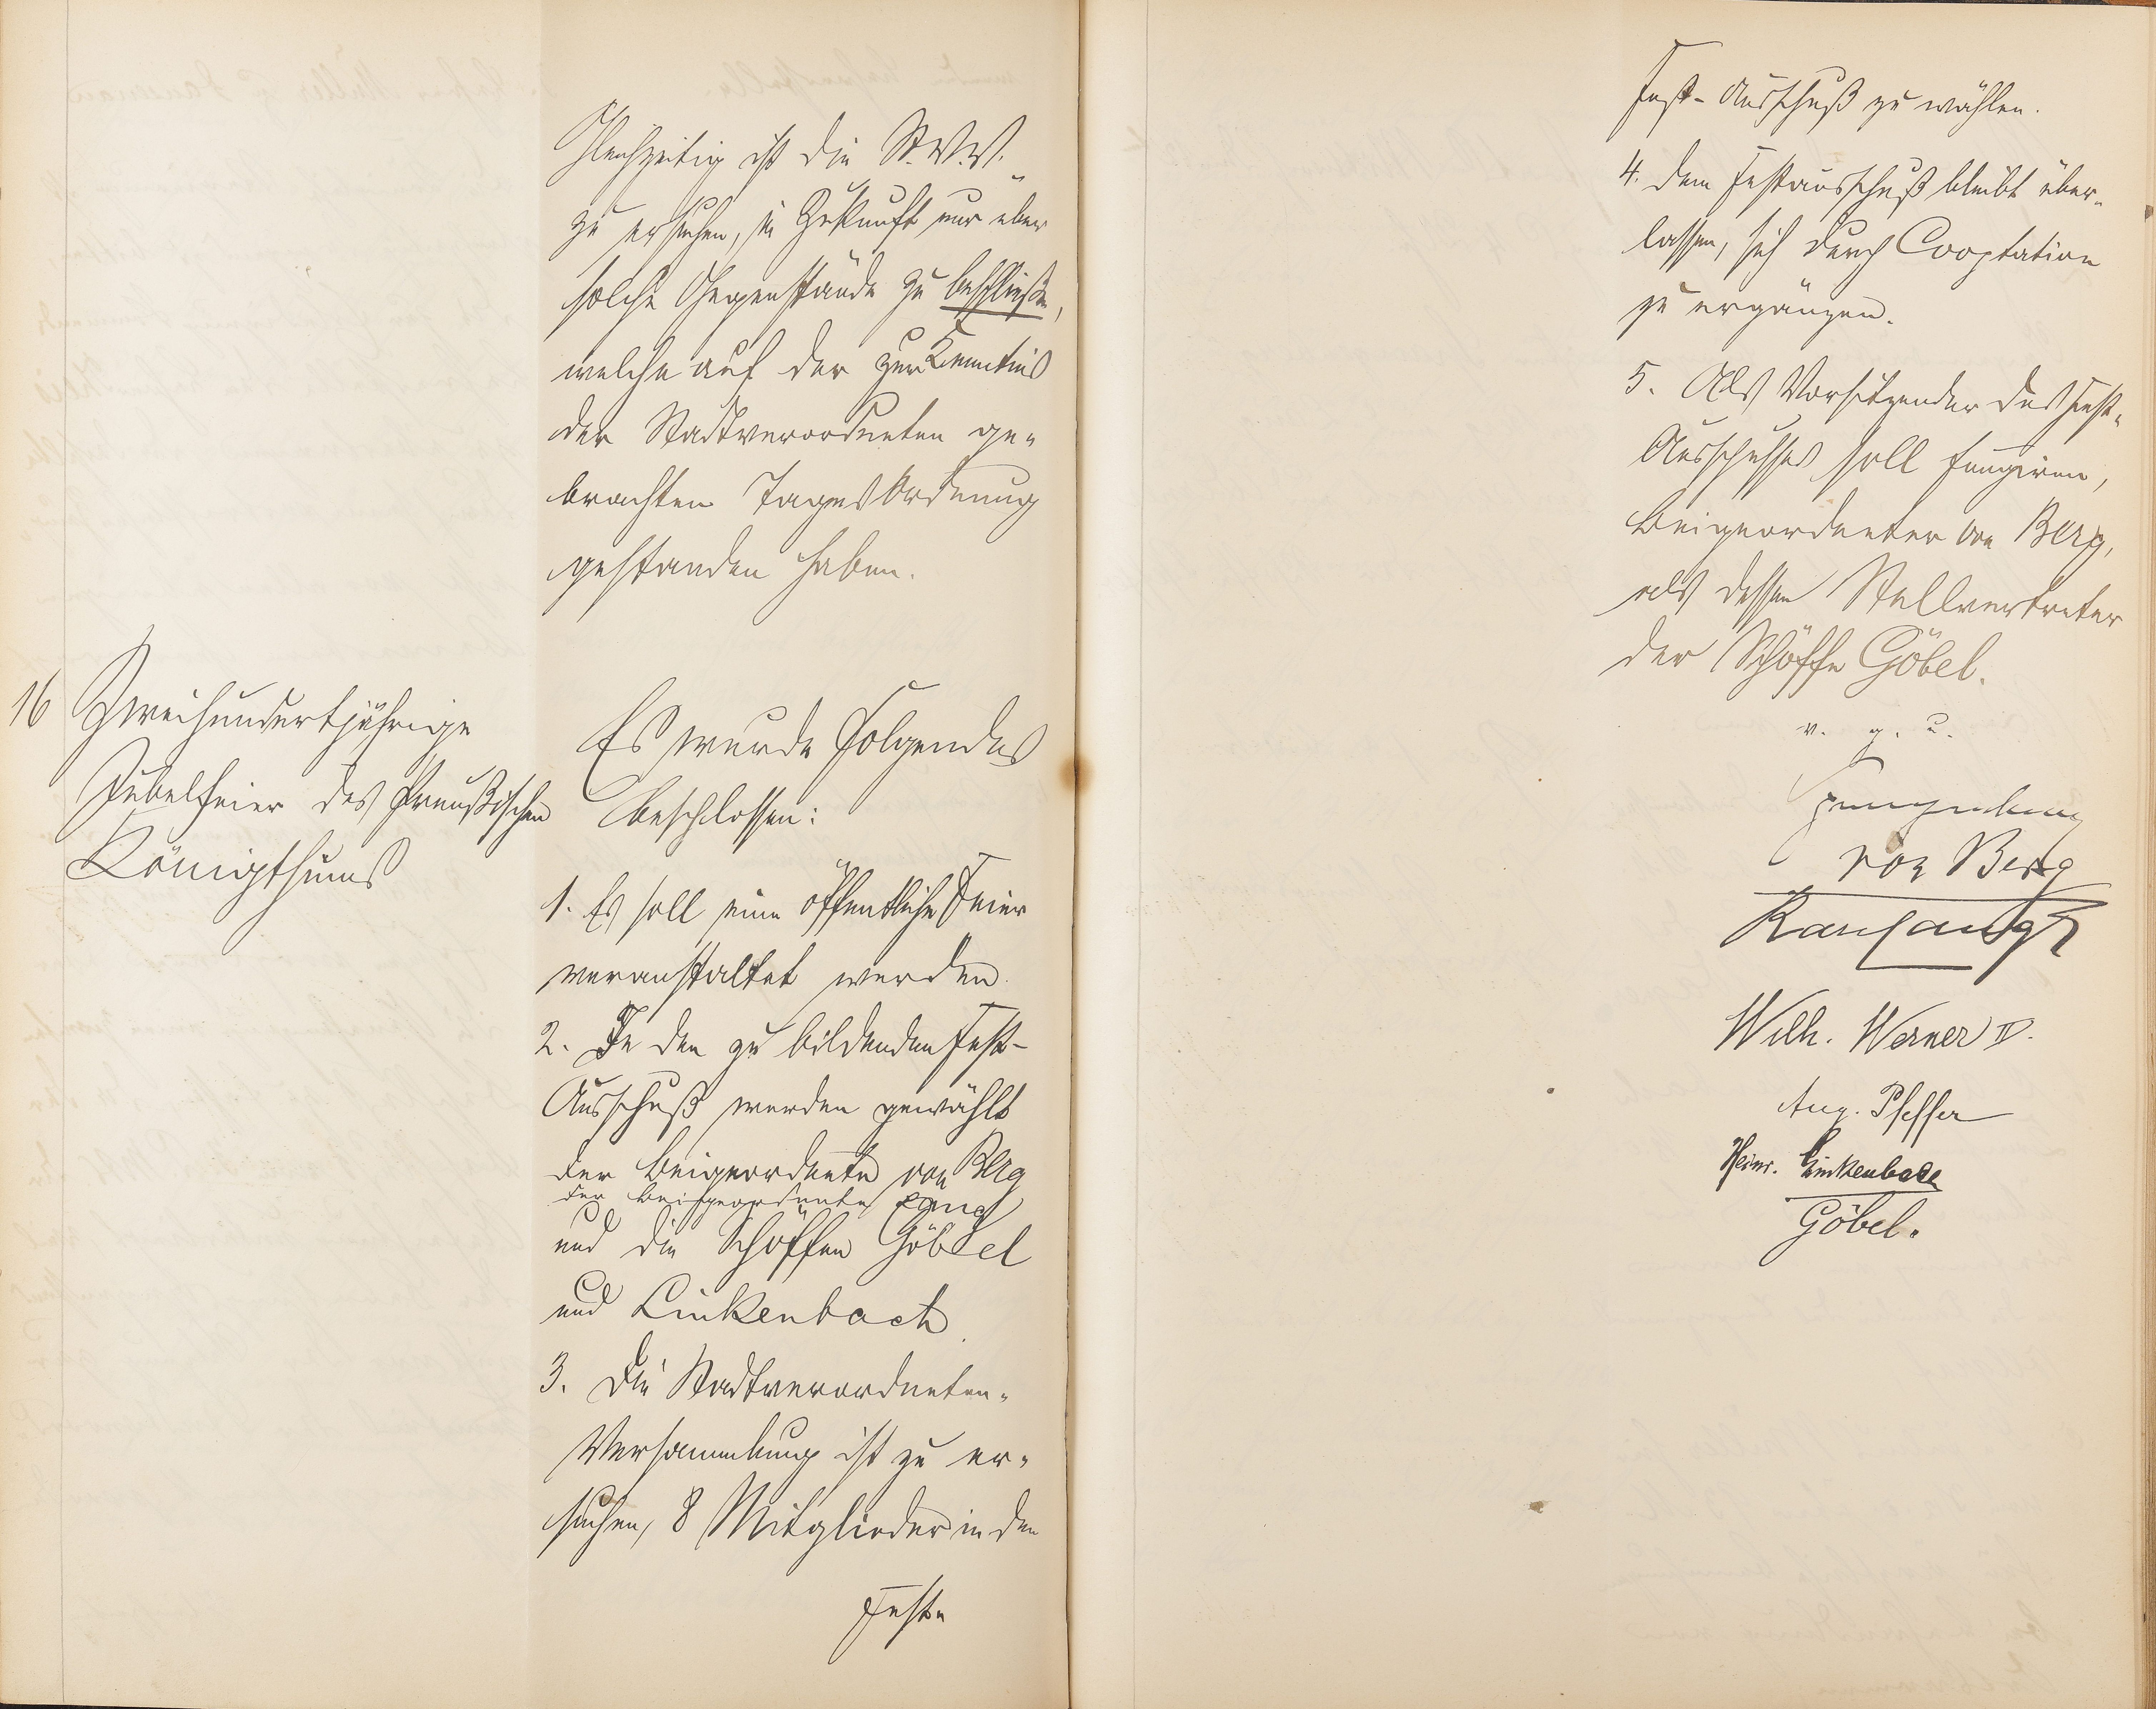 Gleichzeitig ist die St. V. V.
zu ersuchen, in Zukunft nur über
solche Gegenstände zu beschließen,
welche auf der zur Kenntnis
der Stadtverordneten ge-
brachten Tagesordnung
gestanden haben.
16 Zweihundertjährige
Jubelfeier des Preußischen
Königthums
Es wurde Folgendes
beschlossen:
1. Es soll eine öffentliche Feier
veranstaltet werden.
2. In den zu bildenden Fest-
Ausschuß werden gewählt
der Beigeordnete von Berg
der Beigeordnete
und die Schöffen Göbel
und Linkenbach.
3. Die Stadtverordneten-
Versammlung ist zu er-
suchen, 8 Mitglieder in den
Fest-
Fest-Ausschuß zu wählen.
4. Dem Festausschuß bleibt über-
lassen, sich durch Cooptation
zu ergänzen.
5. Als Vorsitzender des Fest-
Ausschusses soll fungiren,
Beigeordneter von Berg,
als dessen Stellvertreter
der Schöffe Göbel.
v. g. u.
von Berg
Wilh. Werner IV.
Aug. Pfeffer
Heinr. Linkenbach
Göbel.